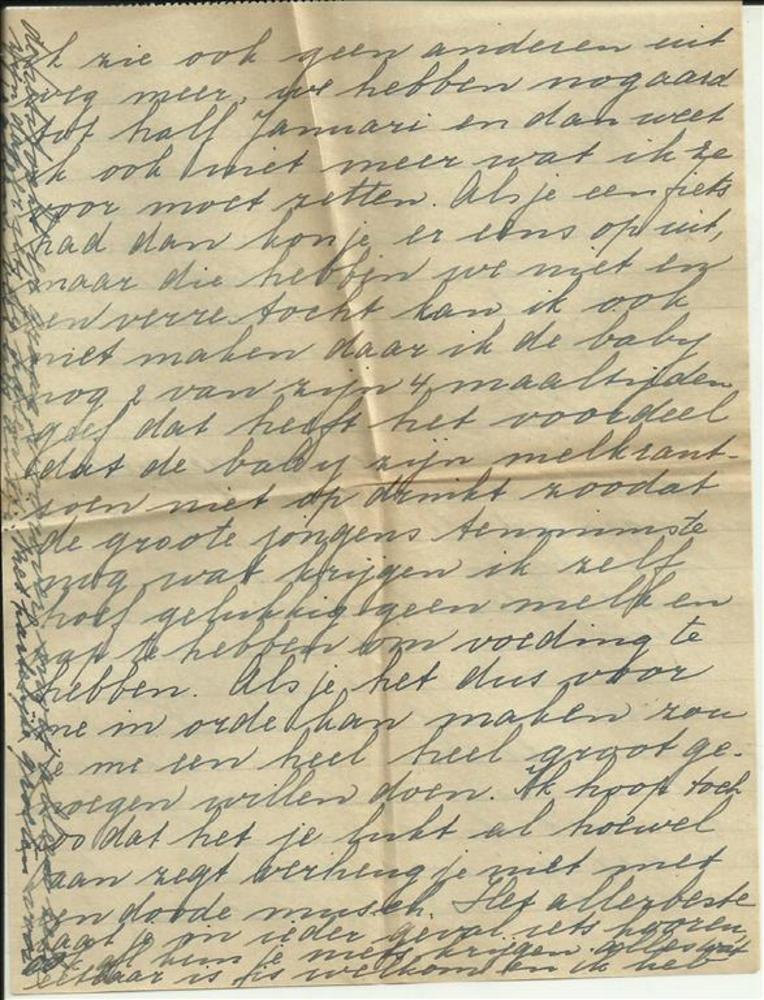 ik zie ook geen anderen uit
weg meer, we hebben nog aard
tot half Januari en dan weet
ik ook niet meer wat ik ze
voor moet zetten. Als je een fiets
had dan kon je er eens op uit,
maar die hebben we niet en
een verre tocht kan ik ook
niet maken daar ik de baby
nog 2 van zijn 4 maaltijden
geef dat heeft het voordeel
dat de baby zijn melkrant-
soen niet op drinkt zoodat
de groote jongens tenminste
nog wat krijgen ik zelf
hoef gelukkig geen melk en
pap te hebben om voeding te
hebben. Als je het dus voor
me in orde kan maken zou
je me een heel heel groot ge-
noegen willen doen. Ik hoop toch
zoo dat het je lukt al hoewel
Daan zegt verheug je niet met
een doode musch. Het allerbeste
laat je in ieder geval iets hooren,
ook al kun je niets krijgen. alles wat
eetbaar is is welkom en ik heb
met hartelijke groeten